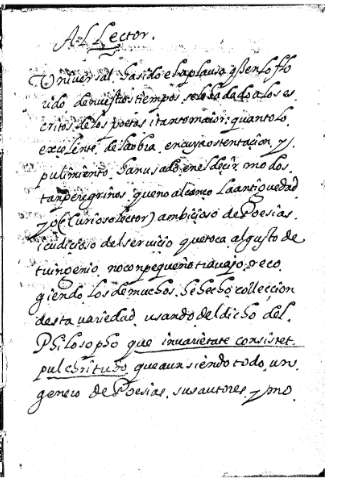 Al Lector.
Universal ha sido el aplauso q̃ en lo flo
rido de nuestros tiempos se le ha dado a los es
critos de los poetas i tanto maior: quanto lo
excelente de la obra, en cuya ostentacion, y
pulimiento, han usado en el decir, modos
tan peregrinos, que no alcanzo La antiguedad
yo (Curioso lector) ambicioso de Poesias
i cudicioso del servicio que toca al gusto de
tu ingenio, no con pequeño travajo, reco
giendo los de muchos. He hecho collection
desta variedad, usando del dicho del
Philosopho que invarietate consistet
pulchritudo, que aun siendo todo, un
genero de Poesias, sus autores, y mo